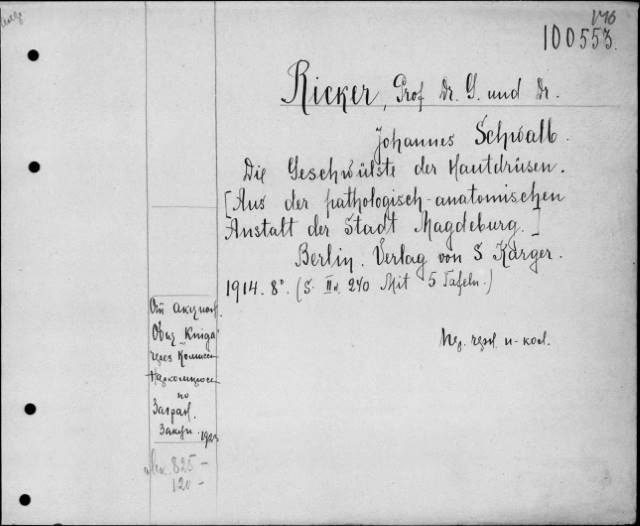 V46
100553.
Ricker, Prof Dr. G. und Dr.
Johannes Schwalb.
Die Geschwülste der Hautdrüsen.
[Aus der pathologisch-anatomischen
Anstalt der Stadt Magdeburg.]
Berlin. Verlag von S Karger.
1914. 8°. (S. II u. 240 Mit 5 Tafeln.)
От акцион.
Общ. "Kniga"
через Комисси
Наркомпроса
по
Заграл.
Закуп. 1923
825 -
120 -